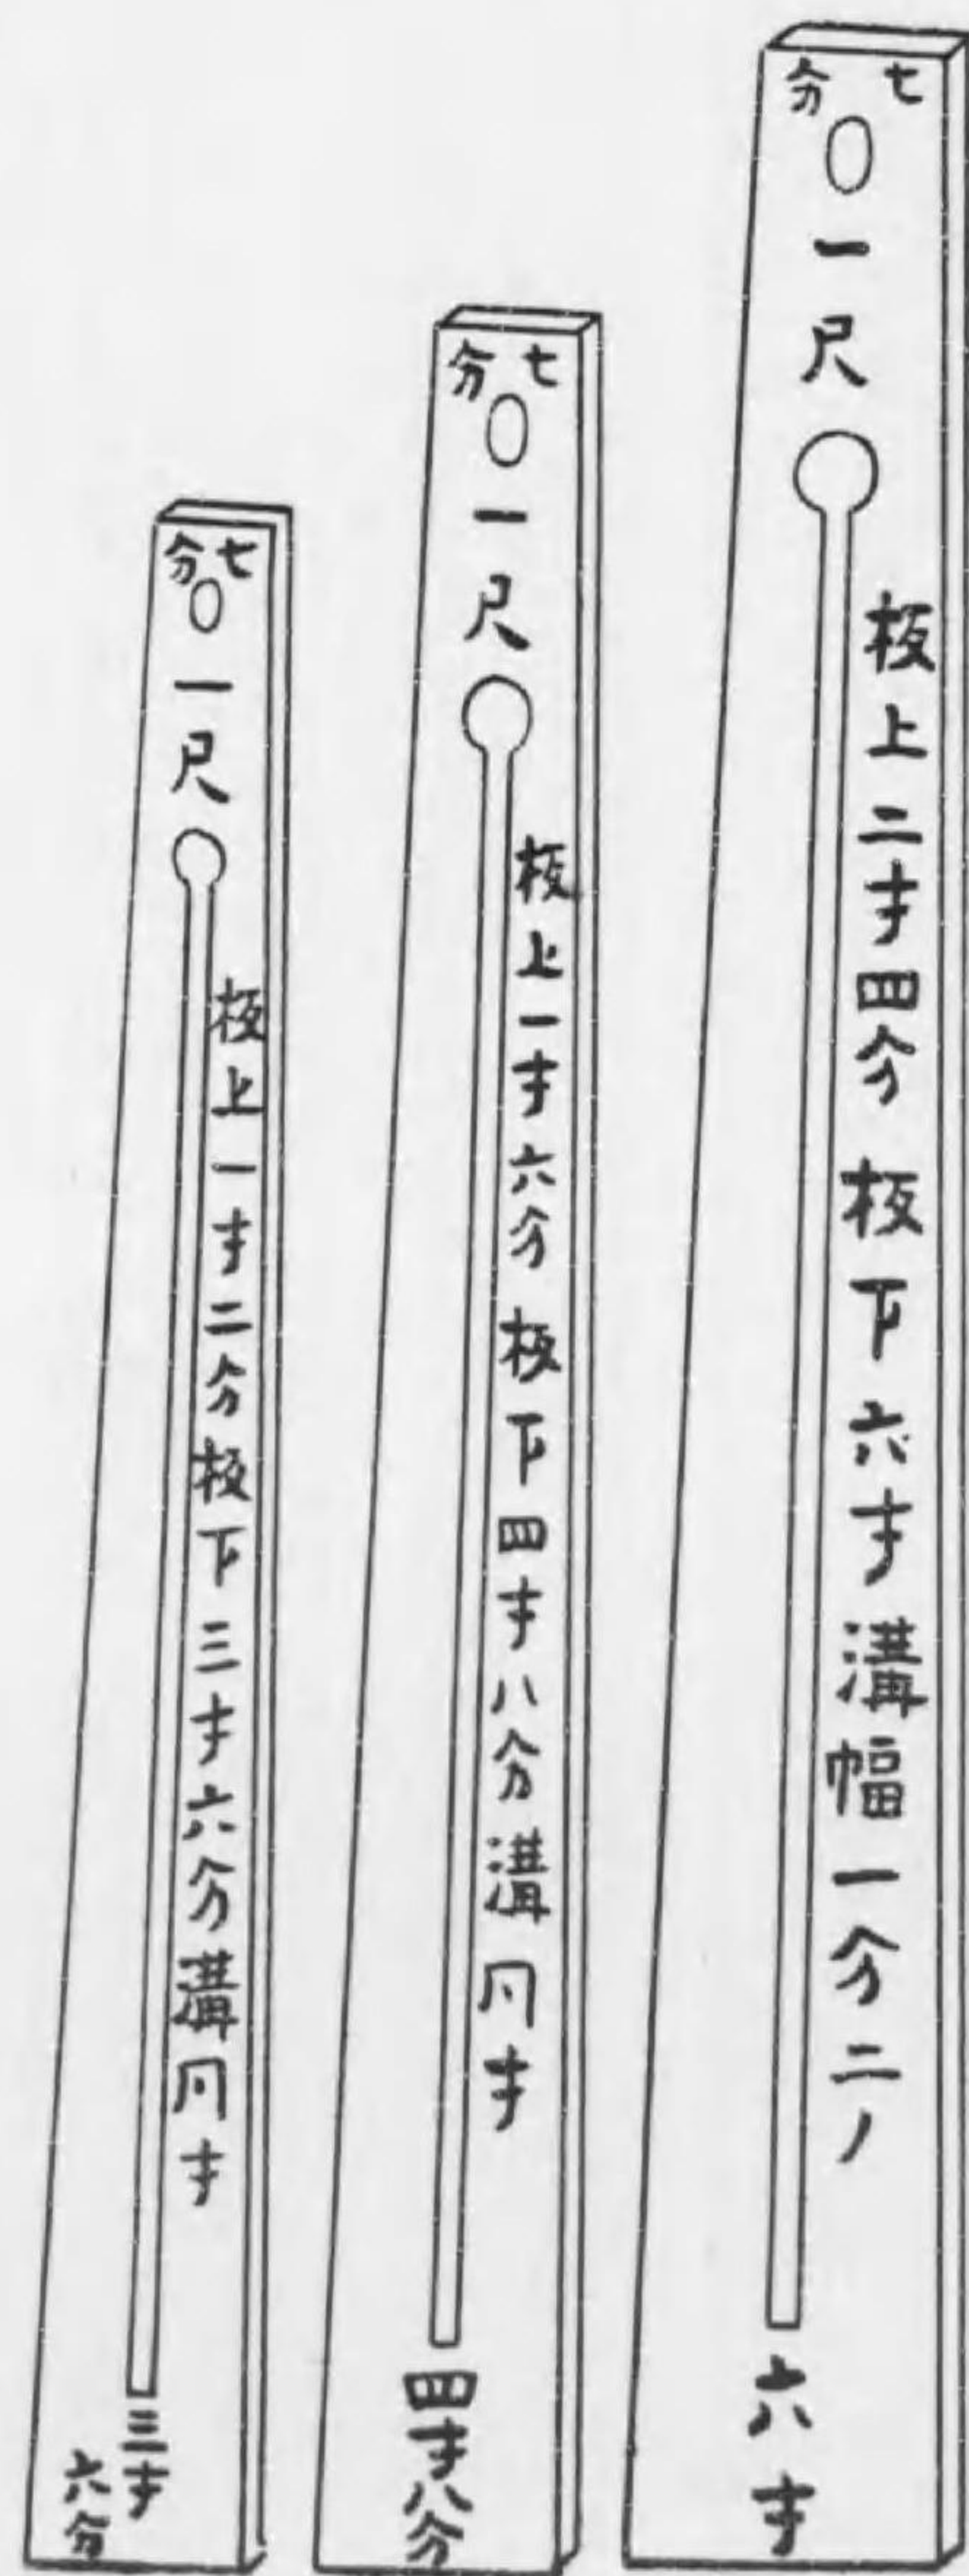 七分
一尺
板上二寸四分 板下六寸溝幅一分二ノ
六寸
七分
一尺
板上一寸六分 板下四寸八分溝同寸
四寸八分
七分
一尺
板上一寸二分板下三寸六分溝同寸
三寸
六分